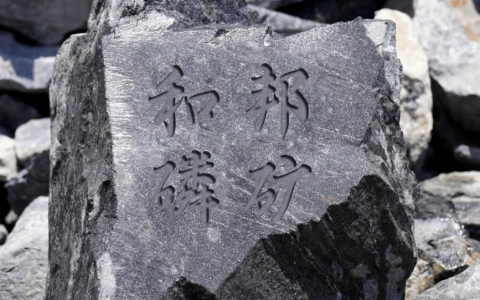 和邦
磷矿